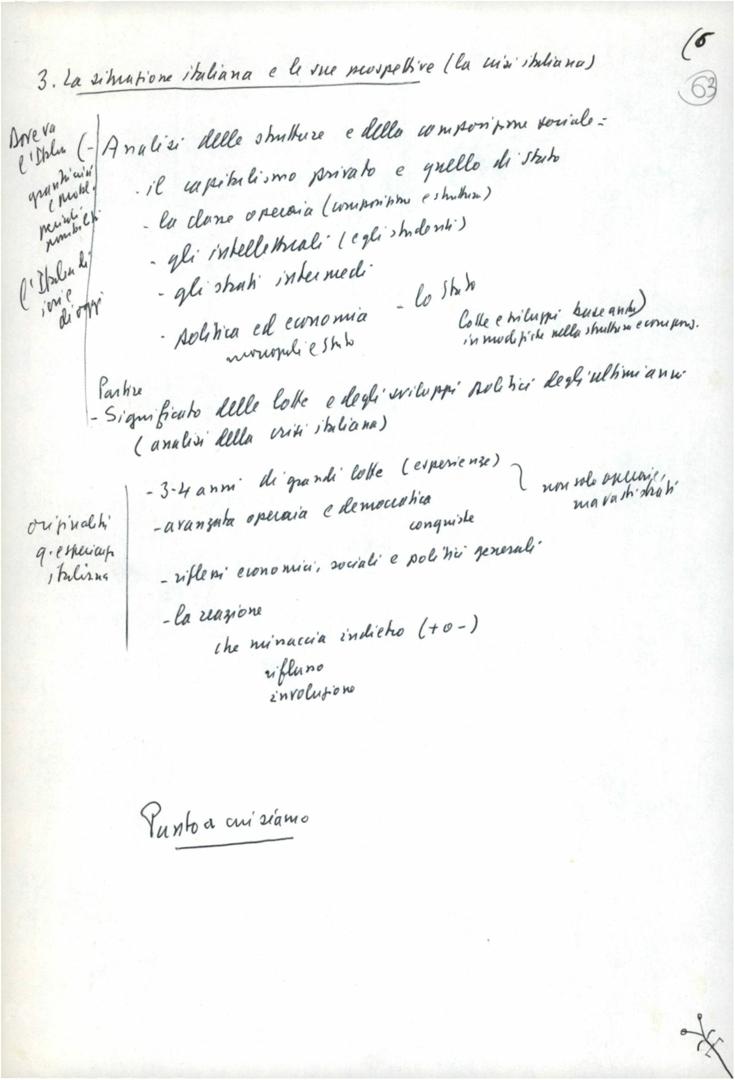 (6
63
3. La situazione italiana e le sue prospettive (la crisi italiana)
Dove va
l'Italia
grandi crisi
e probl.
pericoli
possibilità
l'Italia di
ieri e
di oggi
(- Analisi delle strutture e della composizione sociale =
- il capitalismo privato e quello di stato
- la classe operaia (composizione e struttura)
- gli intellettuali (e gli studenti)
- gli strati intermedi
- politica ed economia
monopoli e Stato
- lo Stato
lotte e sviluppi
in modifiche nella struttura e compos.
Partire
- Significato delle lotte e degli sviluppi politici degli ultimi anni
(analisi della crisi italiana)
originalità
italiana
- 3-4 anni di grandi lotte (esperienze)
- avanzata operaia e democratica
conquiste
non solo operaie,
ma vasti strati
- riflessi economici, sociali e politici generali
- la reazione
che minaccia indietro (+ o -)
riflusso
involuzione
Punto a cui siamo